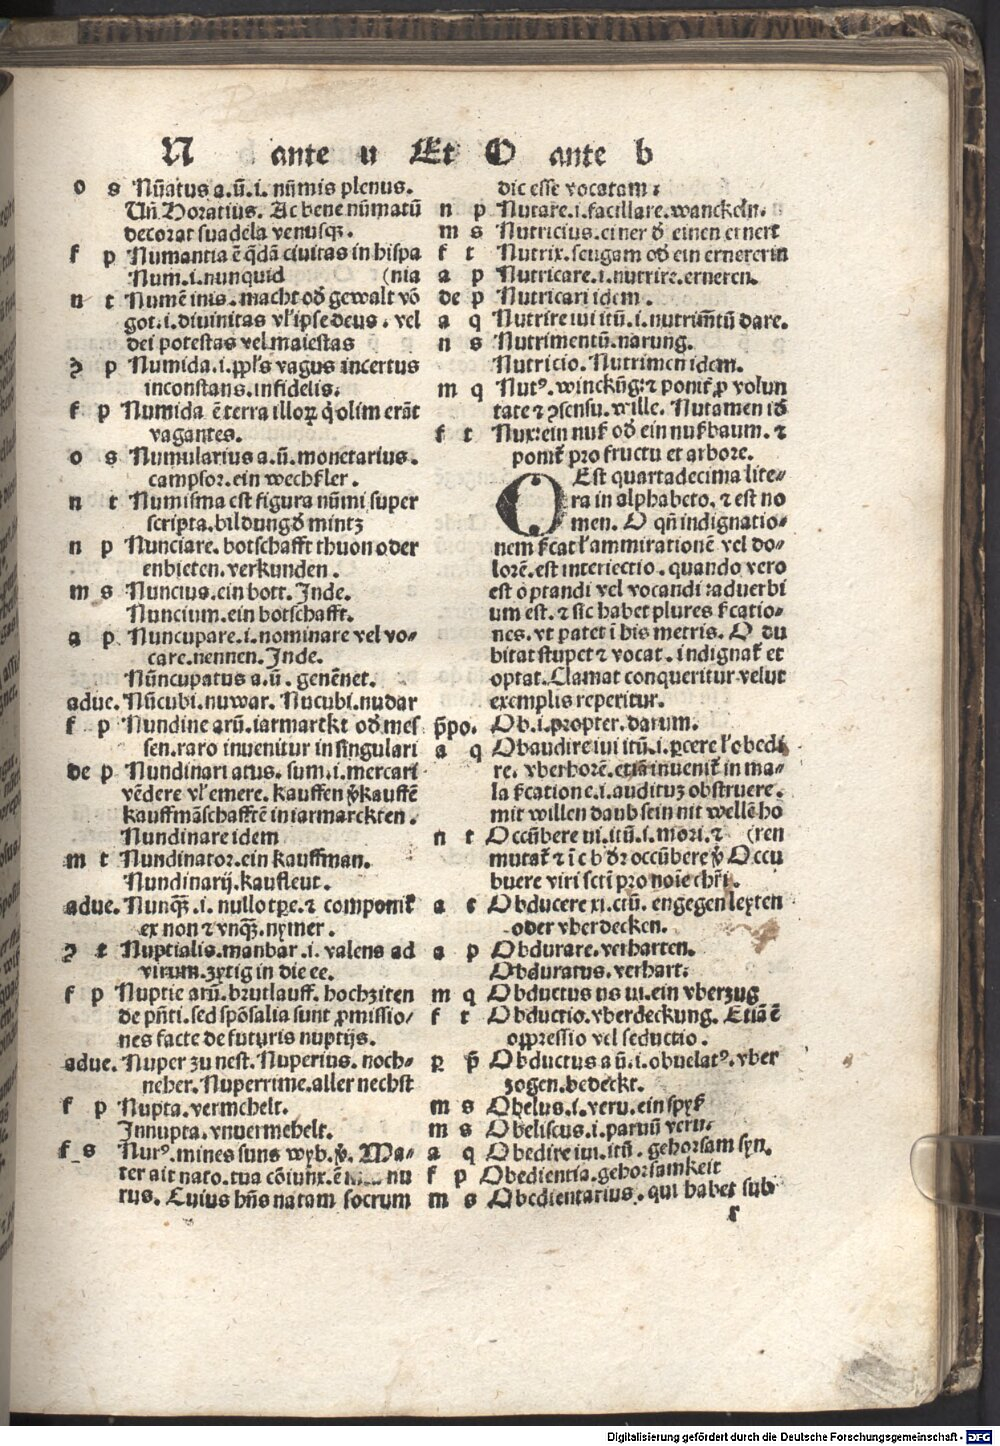 N ante u Et O ante b
o s Nūatus a.ū.i. nūmis plenus.
Un̄ Horatius. Ac bene nūmatū
decorat suadela venusqꝫ.
f p Numantia ē q̄dā ciuitas in hispa
Num.i.nunquid (nia
n t Numē inis.macht od̄ gewalt vō
got.i.diuinitas vl' ipse deus. vel
dei potestas vel maiestas
ꝯ p Numida.i.ppl's vagus incertus
inconstans.infidelis.
f p Numida ē terra illoꝝ q̇ olim erāt
vagantes.
o s Numularius a.ū.monetarius.
campsor.ein wechsler.
n t Numisma est figura nūmi super
scripta.bildung d̄ mintz
n p Nunciare. botschafft thuon oder
enbieten.verkunden.
m s Nuncius.ein bott. Inde.
Nuncium.ein botschafft.
a p Nuncupare.i.nominare vel vo⸗
care.nennen.Inde.
Nūncupatus a.ū. genēnet.
adue. Nūcubi.nuwar. Nucubi.nudar
f p Nundine arū.iarmarckt od̄ mes
sen.raro inuenitur in singulari
de p Nundinari atus. sum.i.mercari
vēdere vl' emere. kauffen v̄kauffē
kauffmāschafftē in iarmarckten.
Nundinare idem
m t Nundinator.ein kauffman.
Nundinarij.kaufleut.
adue. Nunqꝫ.i. nullo tꝑe.ꞇ componit᷑
ex non ꞇ vnqꝫ.nymer.
ꝯ t Nuptialis.manbar.i. valens ad
virum.zytig in die ee.
f p Nuptie arū.brutlauff. hochziten
de pn̄ti.sed spōsalia sunt ꝓmissio⸗
nes facte de futuris nuptijs.
adue. Nuper zu nest. Nuperius. noch⸗
neher.Nuperrime.aller nechst
f p Nupta.vermehelt.
Innupta.vnuermehelt.
f s Nurꝰ.mines suns wyb.v̄. Ma⸗
ter ait nato.tua cōiunx.ē nu
rus. Cuius hn̄s natam socrum
dic esse vocatam.
n p Nutare.i.facillare.wanckeln.
m s Nutricius.einer d̄ einen ernert
f t Nutrix.seugam od̄ ein ernererin
a p Nutricare.i.nutrire.erneren.
de p Nutricari idem.
a q Nutrire iui itū.i.nutrim̄tū dare.
n s Nutrimentū.narung.
Nutricio. Nutrimen idem.
m q Nutꝰ.winckūg:ꞇ ponit᷑ ꝓ volun
tate ꞇ ꝯsensu.wille. Nutamen id̄
f t Nux:ein nuß od̄ ein nußbaum. ꞇ
ponit᷑ pro fructu et arbore.
O Est quartadecima lite⸗
ra in alphabeto. ꞇ est no
men. O qn̄ indignatio⸗
nem s̄cat l' ammirationē vel do⸗
lorē.est interiectio. quando vero
est optandi vel vocandi:aduerbi
um est. ꞇ sic habet plures s̄catio⸗
nes. vt patet ī his metris. O du
bitat stupet ꞇ vocat. indignat᷑ et
optat.Clamat conqueritur velut
exemplis reperitur.
p̄po. Ob.i.propter.darum.
a q Obaudire iui itū.i.ꝑcere l' obedi
re. vberhorē.etiā inuenit᷑ in ma⸗
la s̄catione.i.audituꝫ obstruere.
mit willen daub sein nit wellē ho
n t Occūbere ui.itū.i.mori.ꞇ (ren
mutat᷑ ꞇ ī c b d̄r occūbere v̄ Occu
buere viri scti pro noīe chr̄i.
a t Obducere xi.ctū. engegen leyten
oder vberdecken.
a p Obdurare.verharten.
Obduratus.verhart.
m q Obductus us ui.ein vberzug
f t Obductio.vberdeckung. Etiā ē
oppressio vel seductio.
p̄ p̄ Obductus a ū.i.obuelatꝰ.vber
zogen.bedeckt.
m s Obelus.i.veru.ein spyß
m s Obeliscus.i.paruū veru.
a q Obedire iui.itū. gehorsam syn.
f p Obedientia.gehorsamkeit
m s Obedientarius. qui habet sub
r
Digitalisierung gefördert durch die Deutsche Forschungsgemeinschaft - DFG